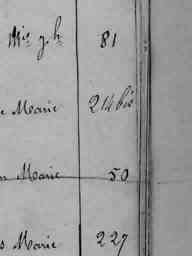 81
e Marie 214 bis
n Marie 50
s Marie 227